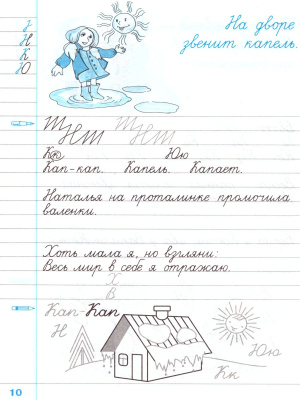 На дворе
звенит капель.
Г
Н
К
Ю
Кк Юю
Кап-кап. Капель. Капает.
Наталья на проталинке промочила
валенки.
Хоть мала я, но взгляни:
Весь мир в себе я отражаю.
Х
В
Кап-Кап
Н
Юю
Кк
10